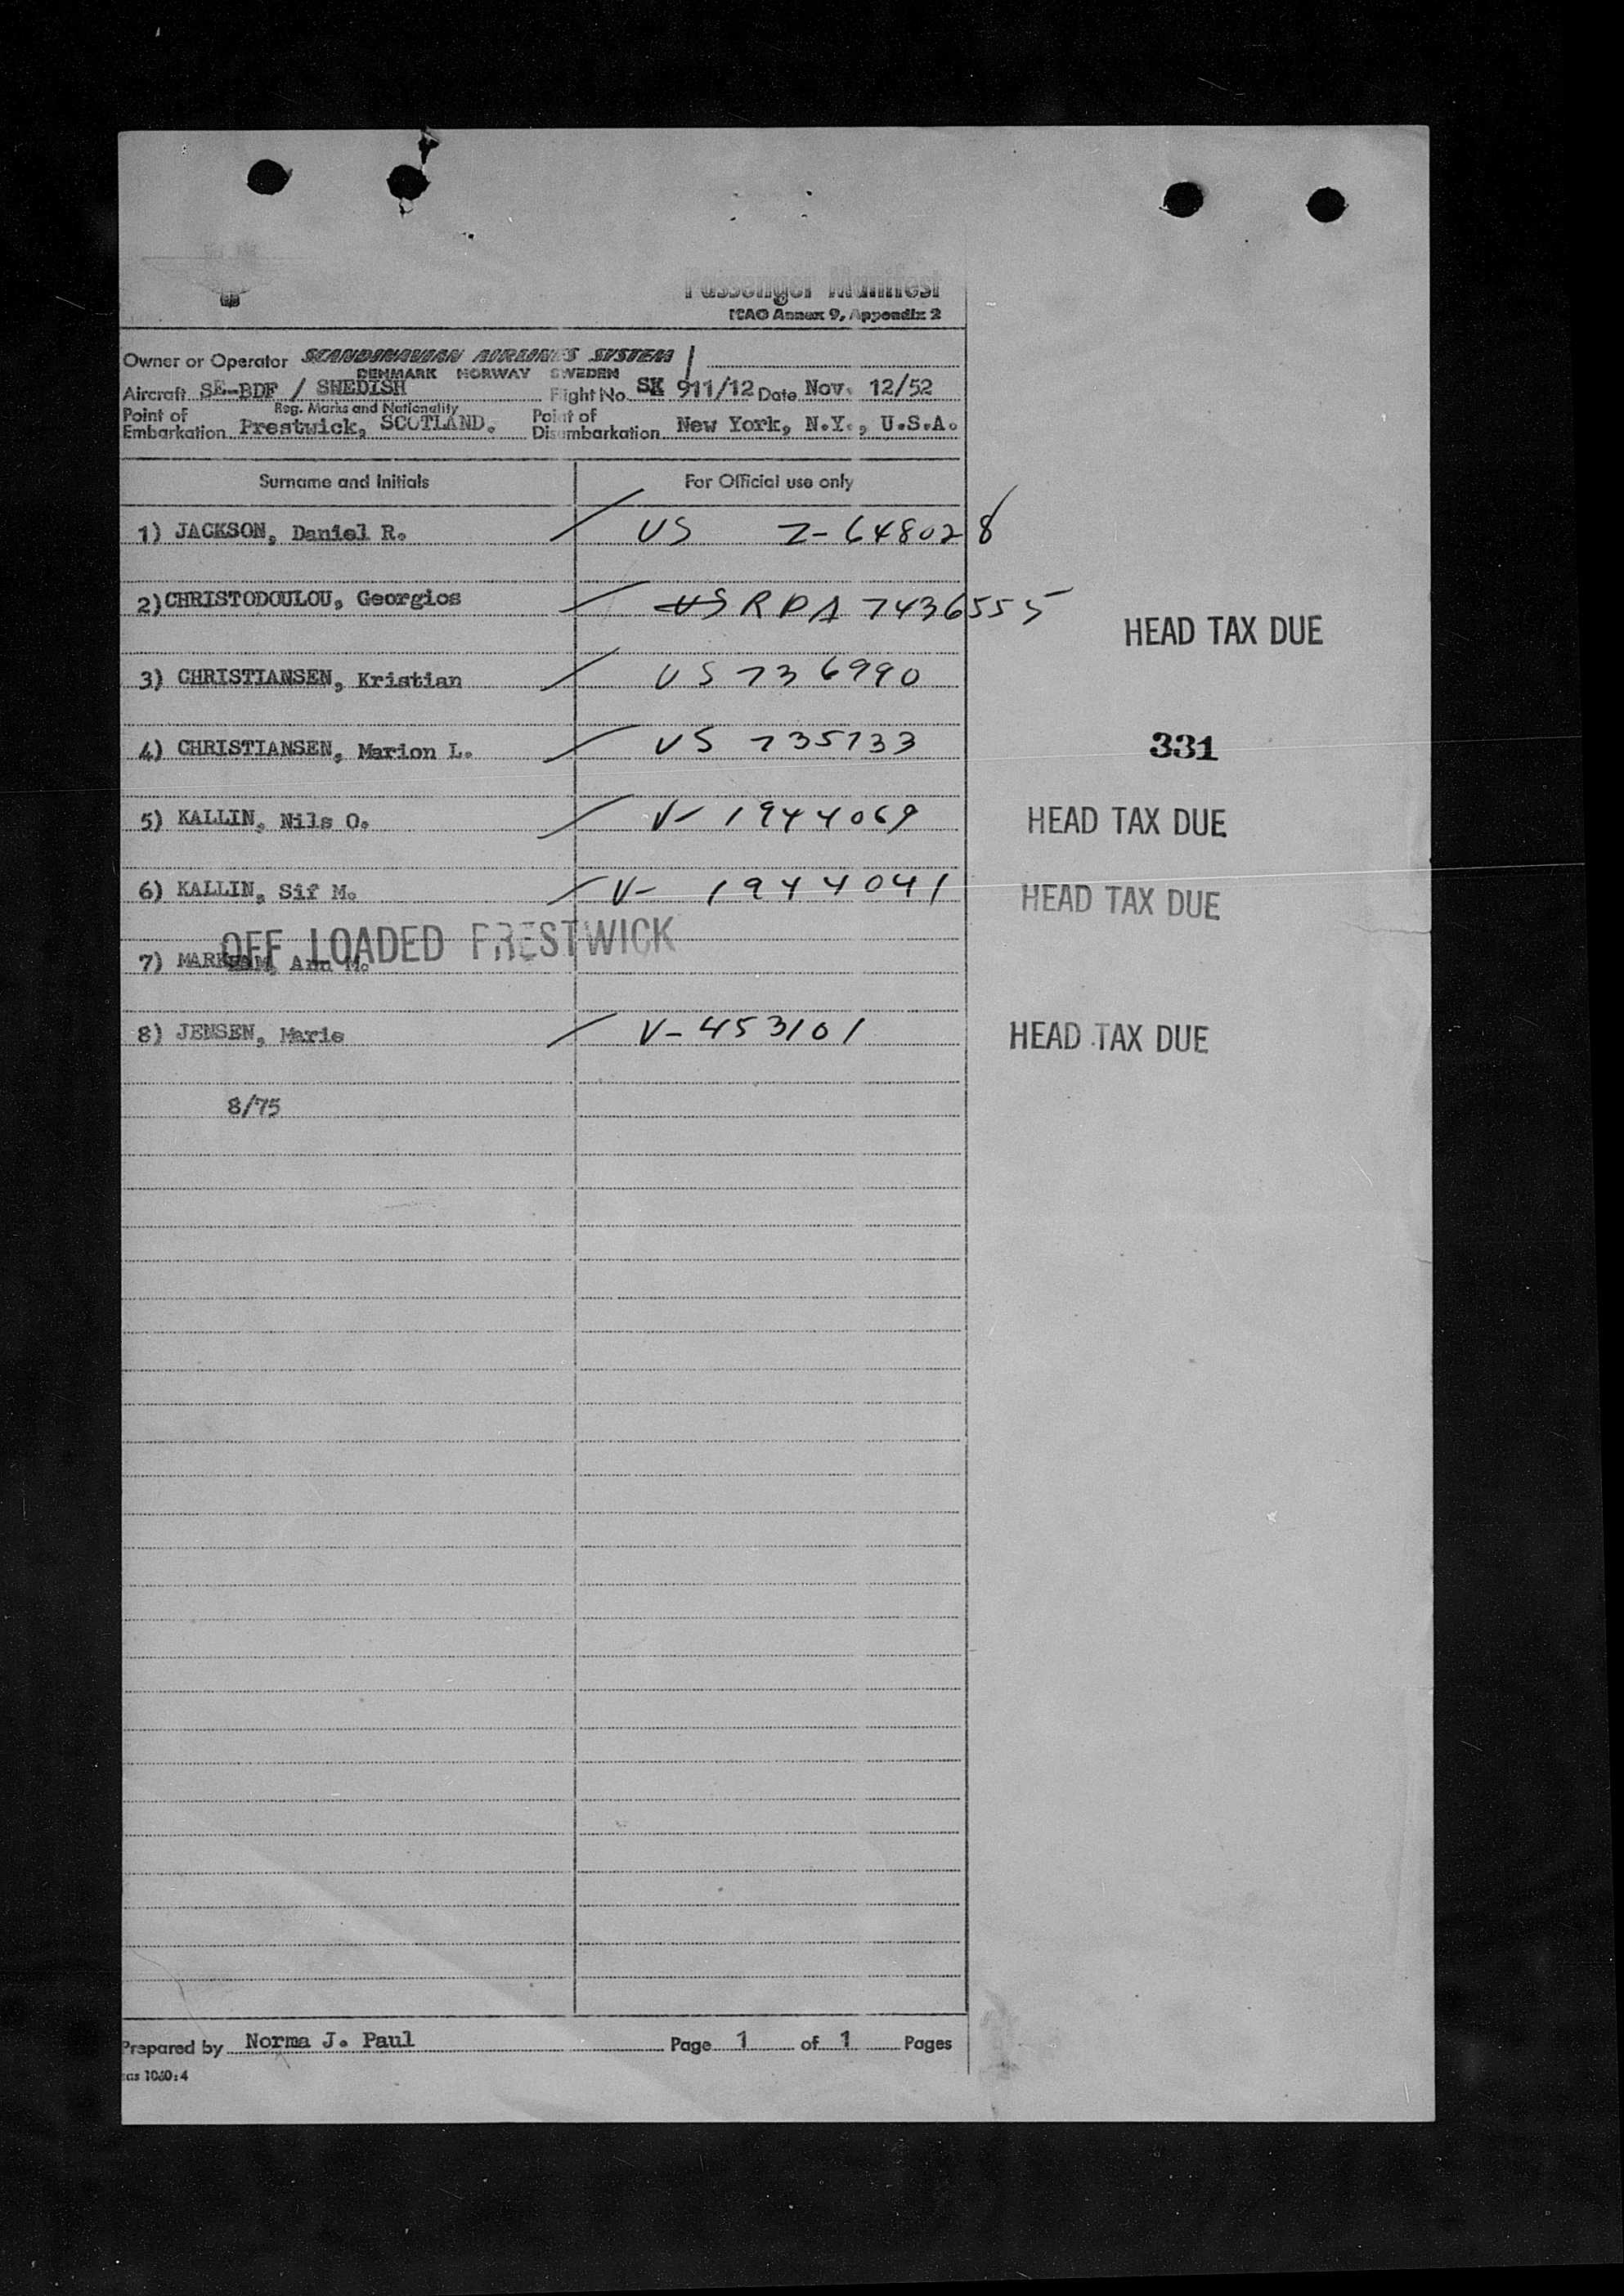 Passenger Manifest
ICAO Annex 9, Appendix 2
Owner or Operator SCANDINAVIAN AIRLINES SYSTEM
DENMARK NORWAY SWEDEN
Aircraft SE-BDF / SWEDISH Flight No. SK 911/12 Date Nov. 12/52
Reg. Marks and Nationality
Point of Embarkation Prestwick, SCOTLAND. Point of Disembarkation New York, N.Y., U.S.A.
Surname and Initials For Official use only
1) JACKSON, Daniel R. US Z-648028
2) CHRISTODOULOU, Georgios US R P A 7436555
HEAD TAX DUE
3) CHRISTIANSEN, Kristian US 736990
4) CHRISTIANSEN, Marion L. US 735733 331
5) KALLIN, Nils O. V- 1944069 HEAD TAX DUE
6) KALLIN, Sif M. V- 1944041 HEAD TAX DUE
OFF LOADED PRESTWICK
7) Ann M.
8) JENSEN, Marie V-453101 HEAD TAX DUE
8/75
Prepared by Norma J. Paul Page 1 of 1 Pages
sas 1060:4